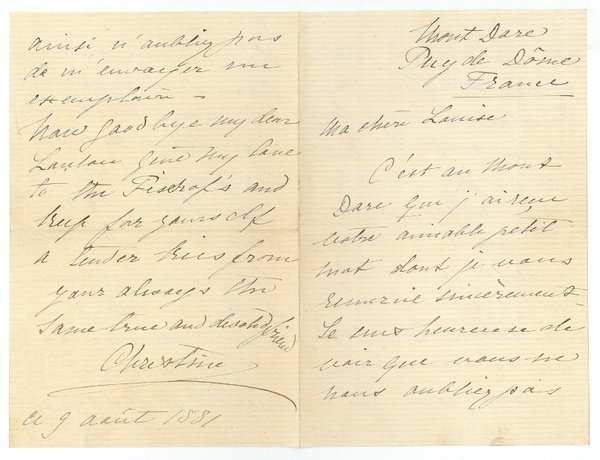 Mont Dore
Puy de Dôme
France
Ma chère Louise
C'est au Mont
Dore que j'ai reçu
votre aimable petit
mot dont je vous
remercie sincèrement.
Je suis heureuse de
voir que vous ne
nous oubliez pas
ainsi n'oubliez pas
de m'envoyer un
exemplaire —
Now goodbye my dear
give my love
to the Fischof's and
keep for yourself
a tender kiss from
your always the
same true and devoted friend
Christine
ce 9 août 1881